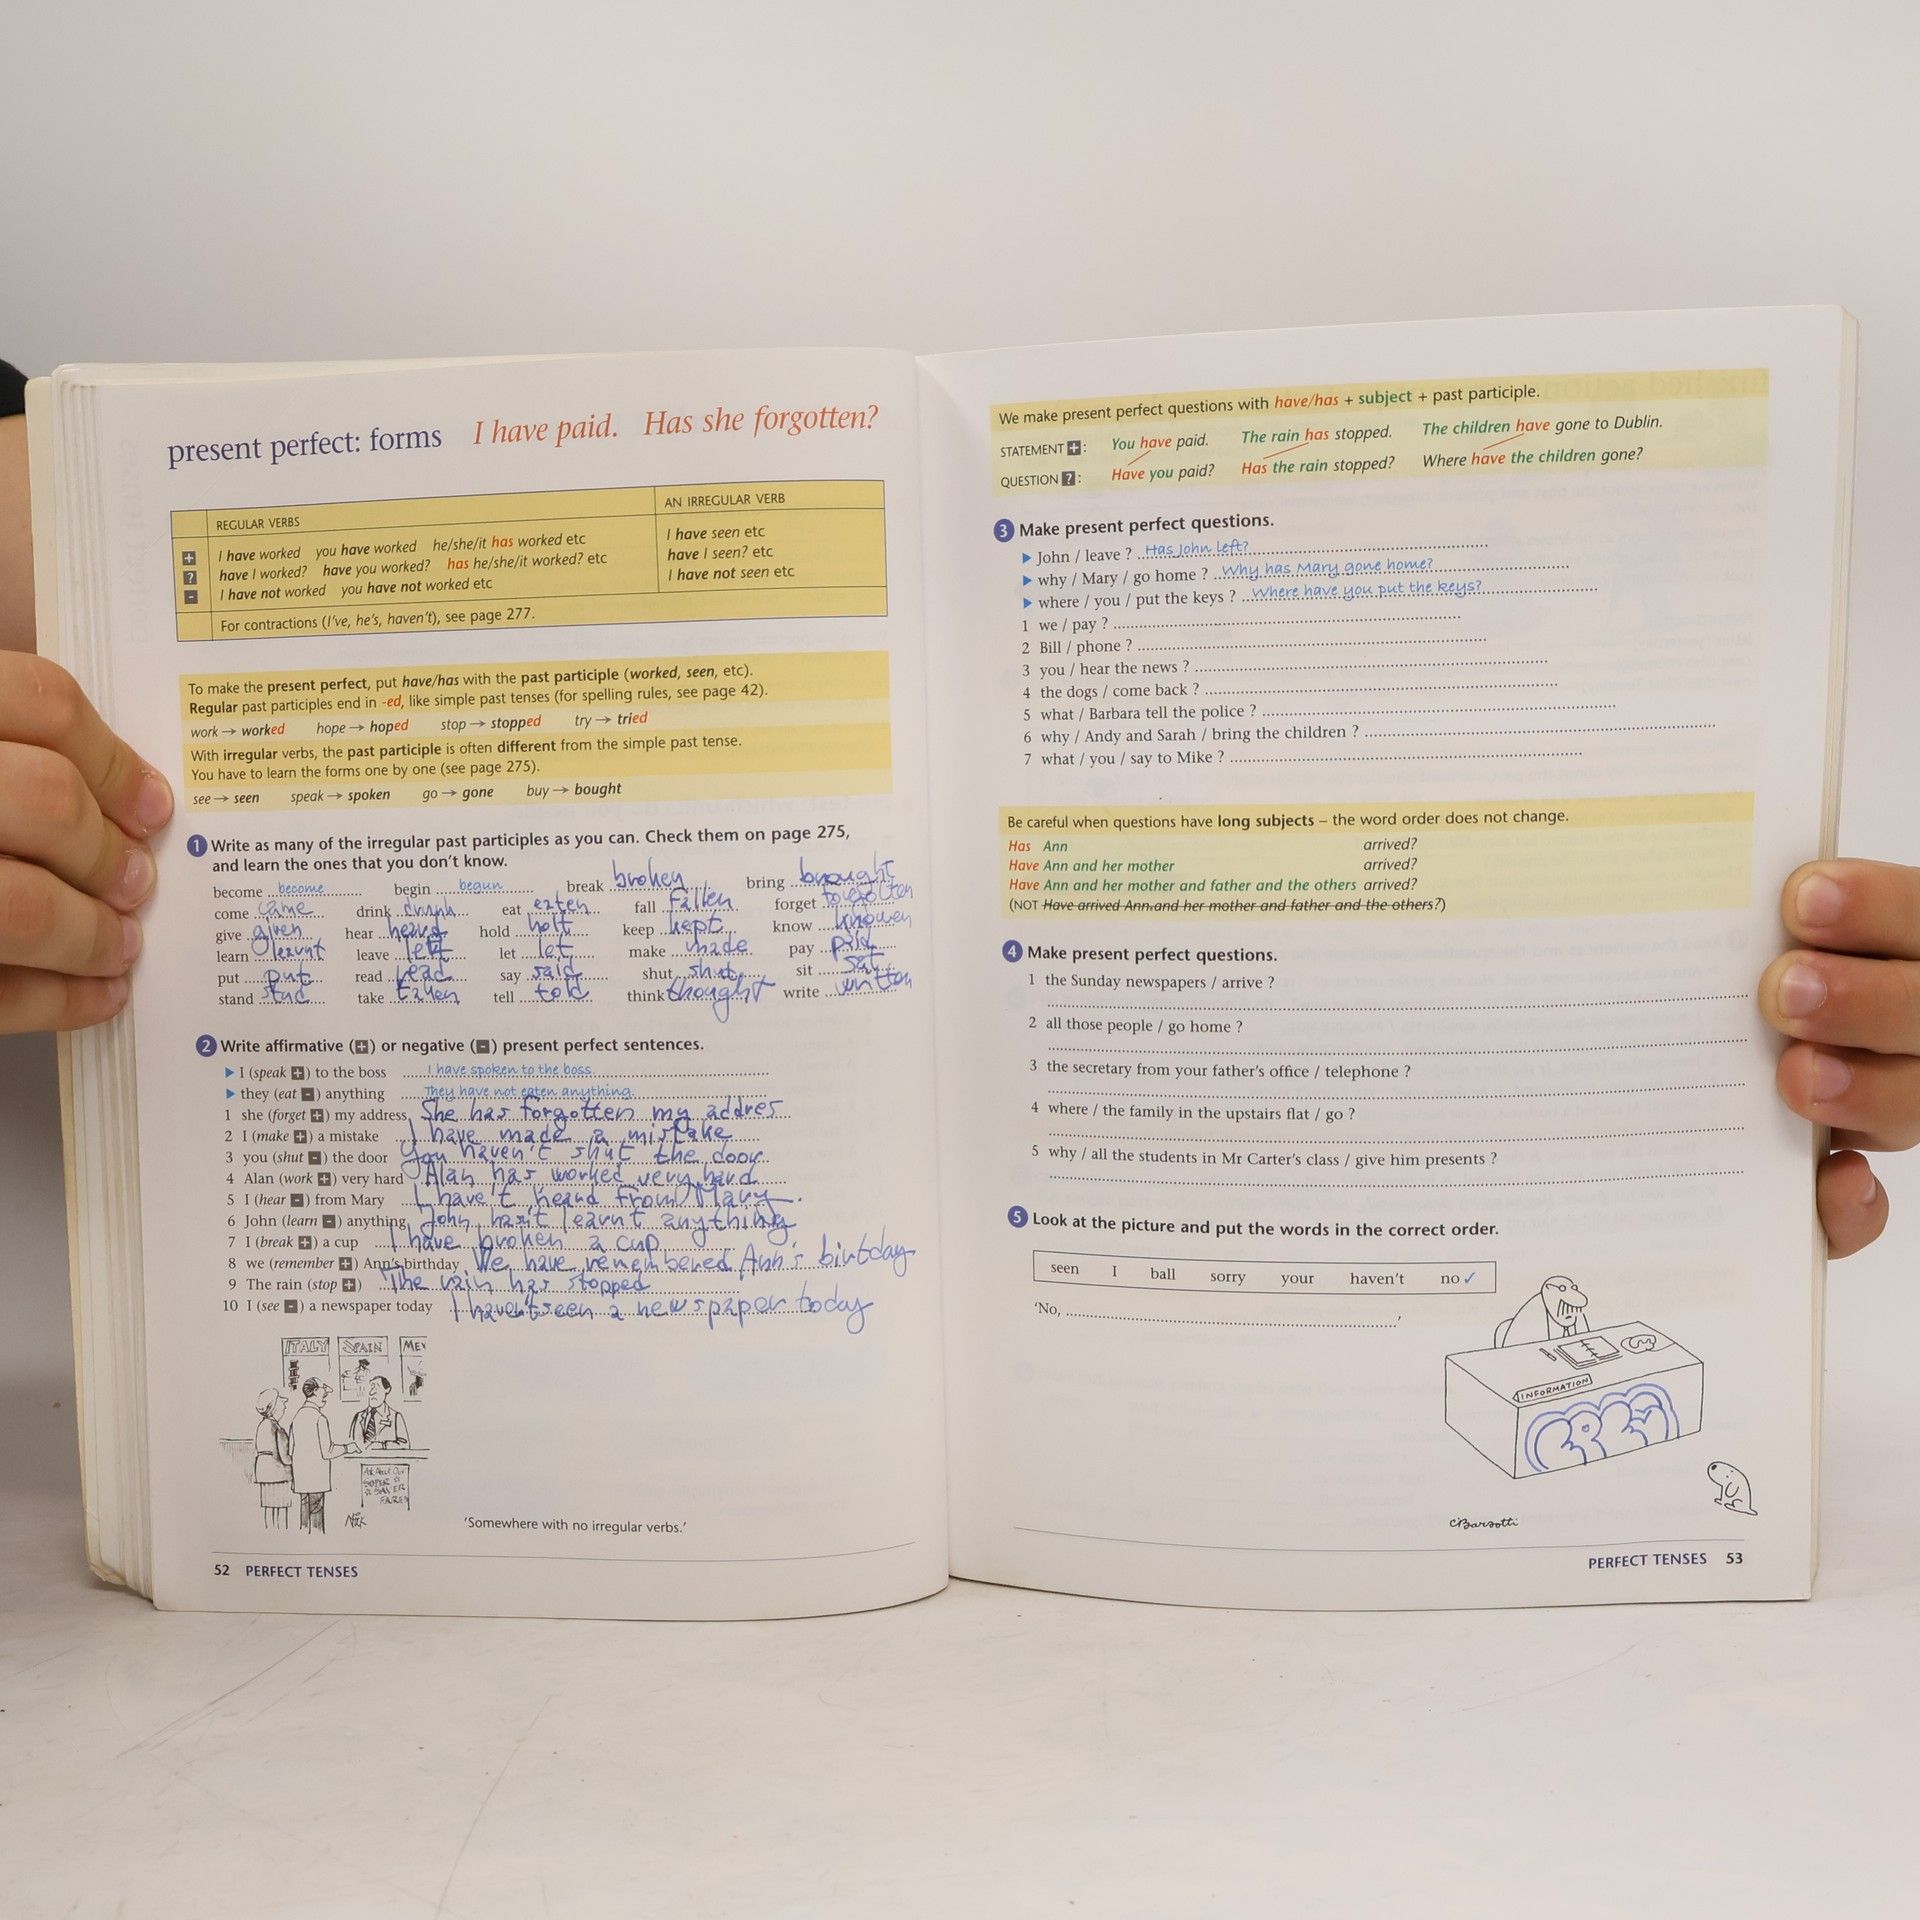 present perfect: forms I have paid. Has she forgotten?
REGULAR VERBS AN IRREGULAR VERB
+ I have worked you have worked he/she/it has worked etc I have seen etc
? have I worked? have you worked? has he/she/it worked? etc have I seen? etc
- I have not worked you have not worked etc I have not seen etc
For contractions (I've, he's, haven't), see page 277.
To make the present perfect, put have/has with the past participle (worked, seen, etc).
Regular past participles end in -ed, like simple past tenses (for spelling rules, see page 42).
work → worked hope → hoped stop → stopped try → tried
With irregular verbs, the past participle is often different from the simple past tense.
You have to learn the forms one by one (see page 275).
see → seen speak → spoken go → gone buy → bought
1 Write as many of the irregular past participles as you can. Check them on page 275,
and learn the ones that you don't know.
become become begin begun break broken bring brought
come came drink drunk eat eaten fall fallen forget forgotten
give given hear heard hold holt keep kept know knowen
learn learnt leave left let let make made pay paid
put put read read say said shut shut sit sat
stand take taken tell told think thought write written
2 Write affirmative (+) or negative (-) present perfect sentences.
▶ I (speak +) to the boss I have spoken to the boss.
▶ they (eat -) anything They have not eaten anything.
1 she (forget +) my address She has forgotten my addres
2 I (make +) a mistake I have made a mistake
3 you (shut -) the door You haven't shut the door
4 Alan (work +) very hard Alan has worked very hard
5 I (hear -) from Mary I have't heard from Mary.
6 John (learn -) anything John hasit learnt anything
7 I (break +) a cup I have broken a cup
8 we (remember +) Ann's birthday We have remembered Ann's birtday
9 The rain (stop +) The rain has stopped
10 I (see -) a newspaper today I haven't seen a newspaper today
ITALY SPAIN MEX
ASK ABOUT OUR
SUPER
SAVER
FARES
Nick
'Somewhere with no irregular verbs.'
52 PERFECT TENSES
We make present perfect questions with have/has + subject + past participle.
STATEMENT +: You have paid. The rain has stopped. The children have gone to Dublin.
QUESTION ?: Have you paid? Has the rain stopped? Where have the children gone?
3 Make present perfect questions.
▶ John / leave ? Has John left?
▶ why / Mary / go home ? Why has Mary gone home?
▶ where / you / put the keys ? Where have you put the keys?
1 we / pay ?
2 Bill / phone ?
3 you / hear the news ?
4 the dogs / come back ?
5 what / Barbara tell the police ?
6 why / Andy and Sarah / bring the children ?
7 what / you / say to Mike ?
Be careful when questions have long subjects – the word order does not change.
Has Ann arrived?
Have Ann and her mother arrived?
Have Ann and her mother and father and the others arrived?
(NOT Have arrived Ann and her mother and father and the others?)
4 Make present perfect questions.
1 the Sunday newspapers / arrive ?
2 all those people / go home ?
3 the secretary from your father's office / telephone ?
4 where / the family in the upstairs flat / go ?
5 why / all the students in Mr Carter's class / give him presents ?
5 Look at the picture and put the words in the correct order.
seen I ball sorry your haven't no ✓
'No, .'
INFORMATION
CBarsotti
PERFECT TENSES 53